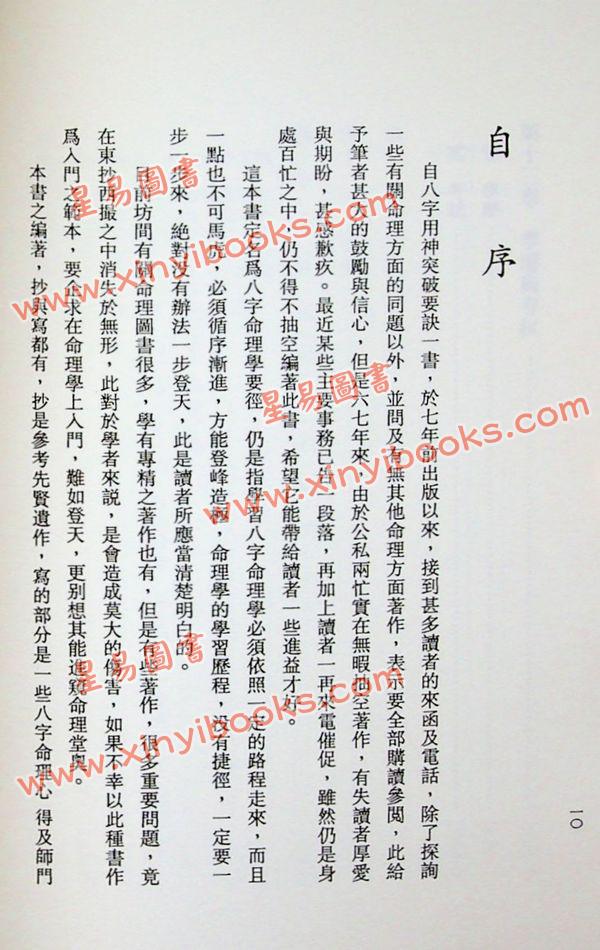 自序
自八字用神突破要訣一書，於七年前出版以來，接到甚多讀者的來函及電話，除了探詢
一些有關命理方面的同題以外，並問及有無其他命理方面著作，表示要全部購讀參閱，此給
予筆者甚大的鼓勵與信心，但是六七年來，由於公私兩忙實在無暇抽空著作，有失讀者厚愛
與期盼，甚感歉疚。最近某些主要事務已告一段落，再加上讀者一再來電催促，雖然仍是身
處百忙之中，仍不得不抽空編著此書，希望它能帶給讀者一些進益才好。
這本書定名爲八字命理學要徑，仍是指學習八字命理學必須依照一定的路程走來，而且
一點也不可馬虎，必須循序漸進，方能登峰造極，命理學的學習歷程，沒有捷徑，一定要一
步一步來，絕對沒有辦法一步登天，此是讀者所應當清楚明白的。
目前坊間有關命理圖書很多，學有專精之著作也有，但是有些著作，很多重要問題，竟
在東抄西撮之中消失於無形，此對於學者來說，是會造成莫大的傷害，如果不幸以此種書作
爲入門之範本，要企求在命理學上入門，難如登天，更別想其能進窺命理堂奧。
本書之編著，抄與寫都有，抄是參考先賢遺作，寫的部分是一些八字命理心得及師門
一〇
星易圖書
www.xinyibooks.com
星易圖書
www.xinyibooks.com
星易圖書
www.xinyibooks.com